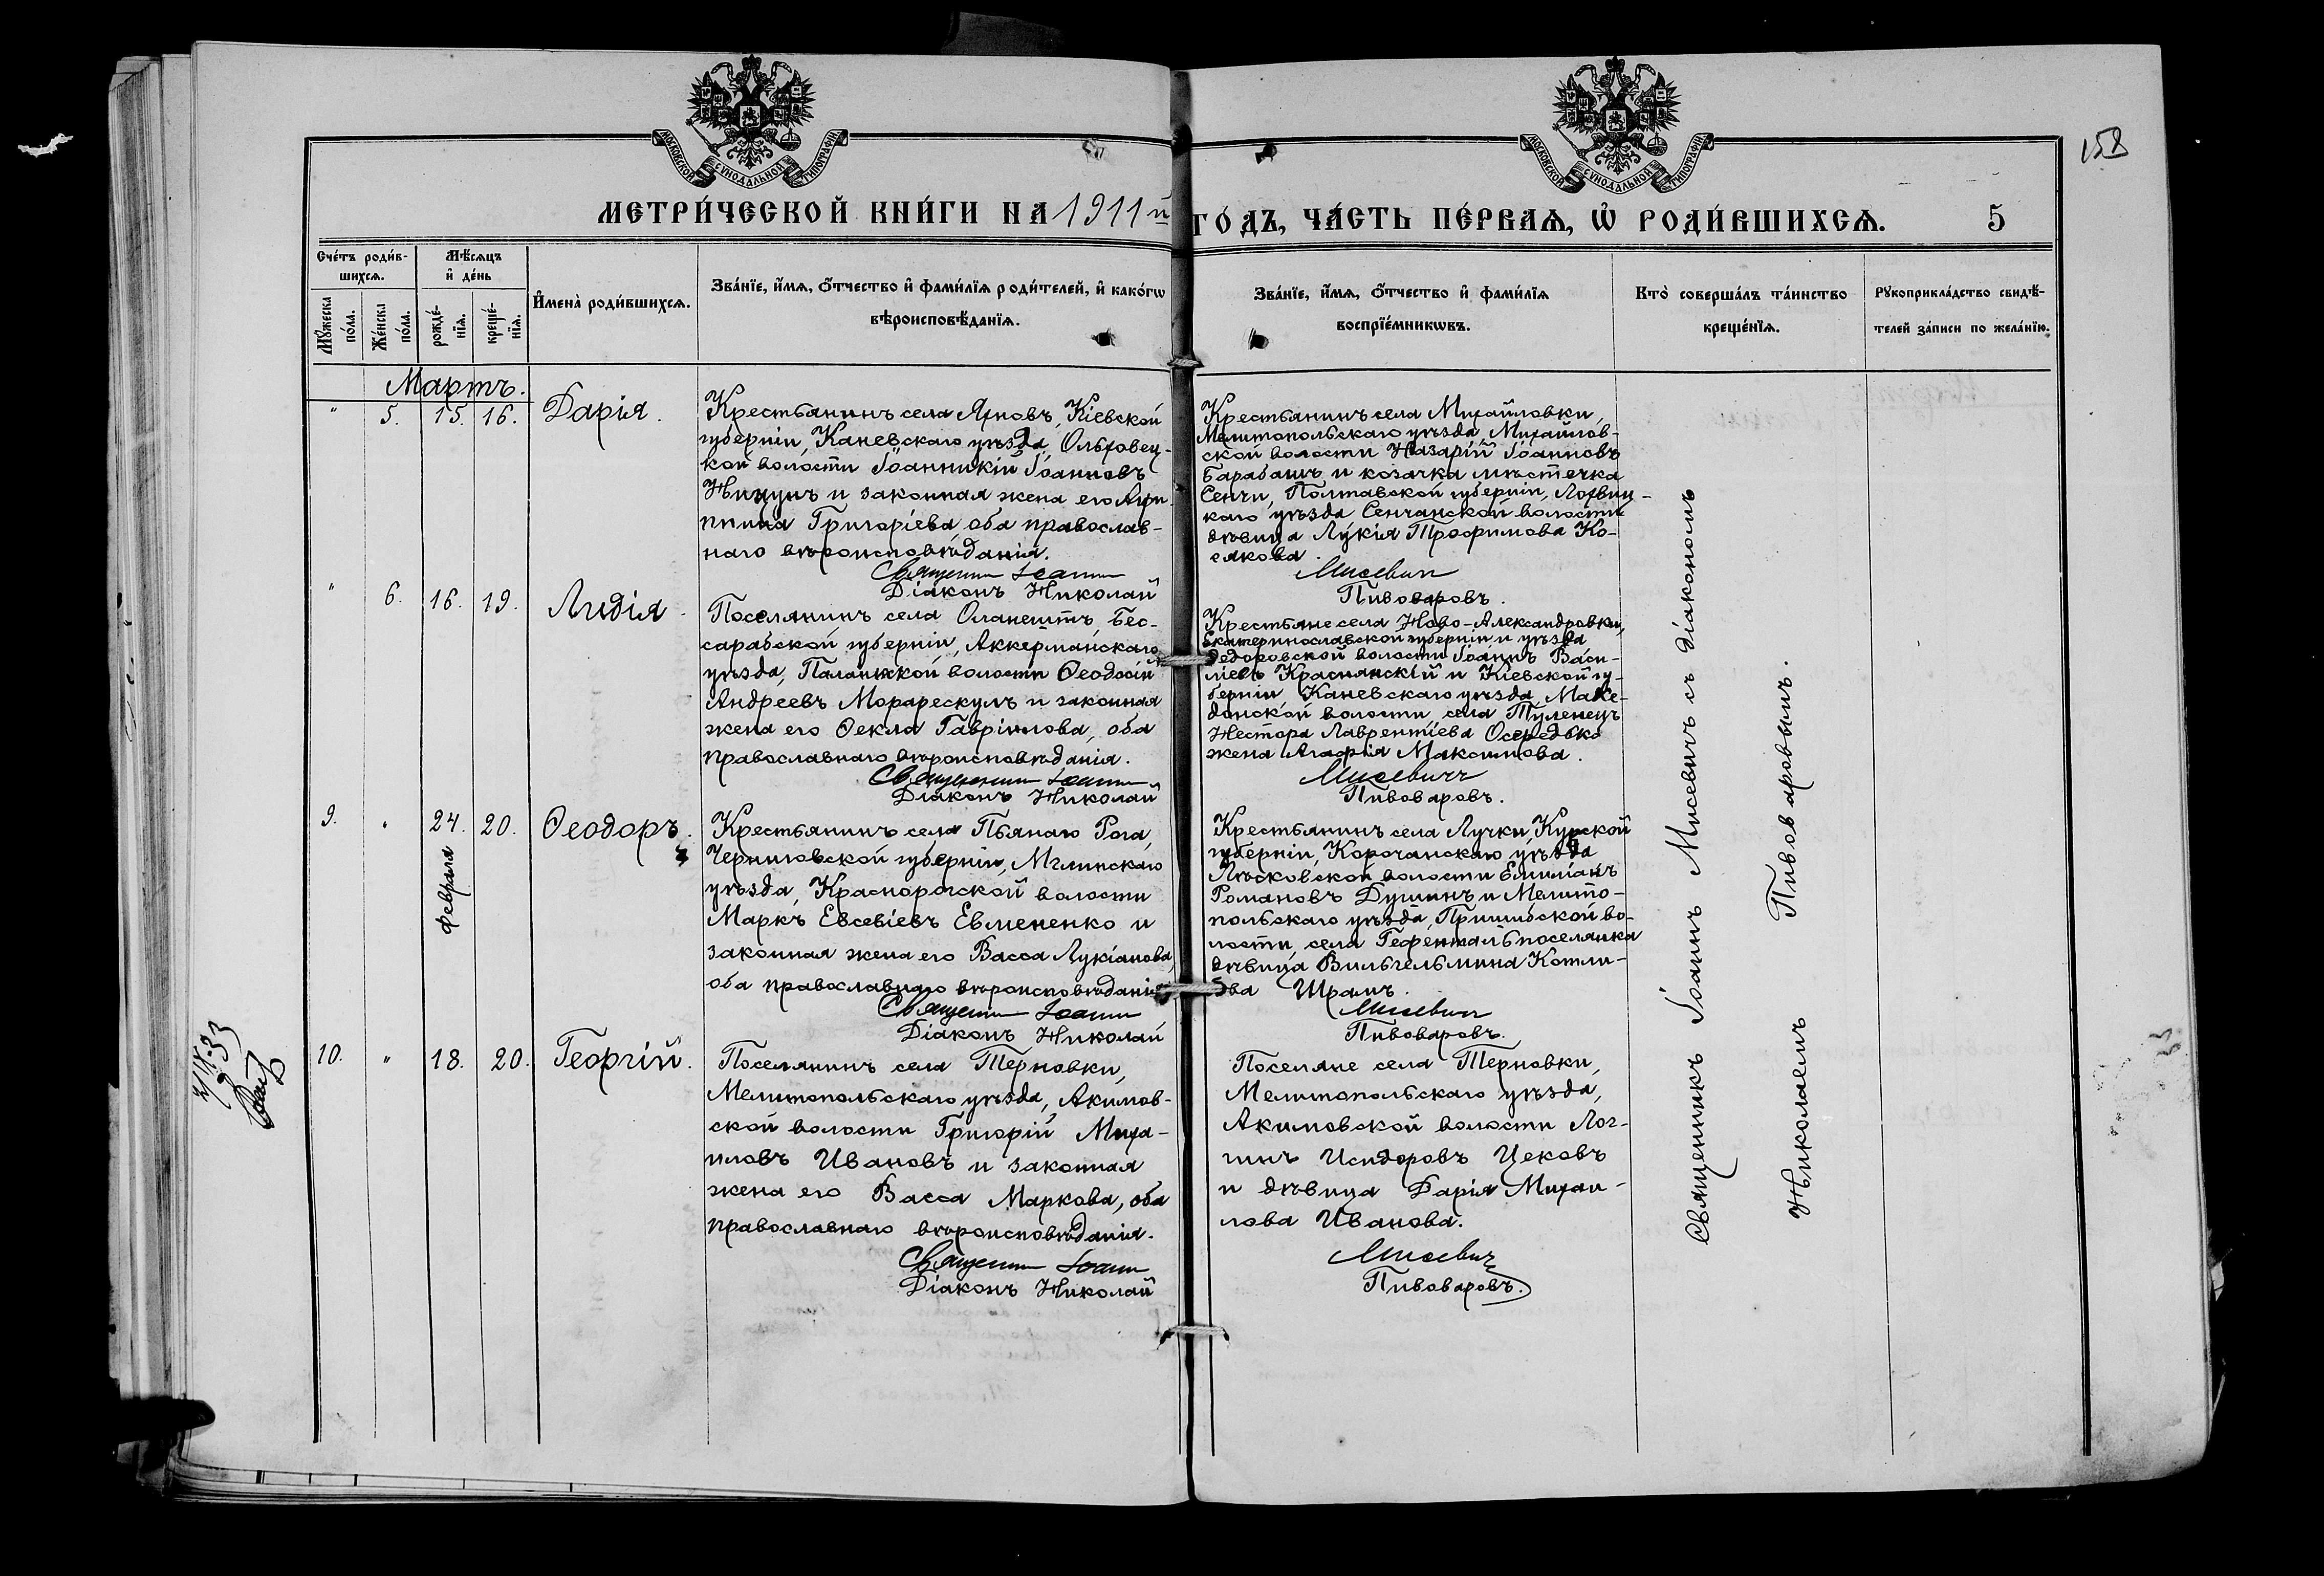 МОСКОВСКОЙ СѴНОДАЛЬНОЙ ТИПОГРАФІИ.
МОСКОВСКОЙ СѴНОДАЛЬНОЙ ТИПОГРАФІИ.
158
МЕТРИ́ЧЕСКОЙ КНИ́ГИ НА 1911й ГО́ДЪ, ЧА́СТЬ ПЕ́РВАѦ, Ѡ҆ РОДИ́ВШИХСѦ. 5
Сче́тъ роди́в-
шихсѧ.
Мꙋ́жеска
по́ла.
Же́нска
по́ла.
Мѣ́сѧцъ
и҆ де́нь
рожде́-
нїѧ.
креще́-
нїѧ.
И҆мена̀ роди́вшихсѧ.
Зва́нїе, и҆́мѧ, ѻ҆́тчество и҆ фами́лїѧ роди́телей, и҆ како́гѡ
вѣроисповѣ́данїѧ.
Зва́нїе, и҆́мѧ, ѻ҆́тчество и҆ фами́лїѧ
воспрїе́мникѡвъ.
Кто̀ соверша́лъ та́инство
креще́нїѧ.
Рꙋкоприкла́дство свидѣ́-
телей за́писи по жела́нїю.
Мартъ.
" 5. 15. 16. Дарія.
Крестьянинъ села Яхновъ, Кіевской
губерніи, Каневскаго уѣзда, Ольховец-
кой волости Іоанникій Іоанновъ
и законная жена его Агри-
ппина Григоріева оба православ-
наго вѣроисповѣданія.
Священник Іоанн
Діаконъ Николай
Крестьянинъ села Михайловки,
Мелитопольскаго уѣзда, Михайлов-
ской волости Назарій Іоанновъ
Барабашъ и козачка мѣстечка
Сенчи, Полтавской губерніи, Лохвиц-
каго уѣзда Сенчанской волости
дѣвица Лукія Трофимова Ко-
сякова.
Мисевич
Пивоваровъ.
" 6. 16. 19. Лидія.
Поселянинъ села Оланештъ, Бес-
сарабской губерніи, Аккерманскаго
уѣзда, Паланкской волости Ѳеодосій
Андреевъ Морарескулъ и законная
жена его Ѳекла Гавріилова, оба
православнаго вѣроисповѣданія.
Священник Іоанн
Діаконъ Николай
Крестьяне села Ново-Александровки,
Екатеринославской губерніи и уѣзда
Ѳедоровской волости Іоаннъ Васи-
ліевъ Краснянскій и Кіевской гу-
берніи Каневскаго уѣзда, Маке-
донской волости, села Тулинецъ
Нестора Лаврентіева Осередько
жена Агафія Максимова.
Мисевичъ
Пивоваровъ.
9. " 24. февраля 20. Ѳеодоръ.
Крестьянинъ села Пьянаго Рога,
Черниговской губерніи, Мглинскаго
уѣзда, Краснорогской волости
Маркъ Евсевіевъ Евмененко и
законная жена его Васса Лукіанова,
оба православнаго вѣроисповѣданія
Священник Іоанн
Діаконъ Николай
Крестьянинъ села Лучки, Курской
губерніи, Корочанскаго уѣзда
Пѣсковской волости Емиліанъ
Романовъ Душинъ и Мелито-
польскаго уѣзда, Пришибской во-
лости, села поселянка
дѣвица Вильгельмина Котли-
бва Шрамъ.
Мисевич
Пивоваровъ.
10. " 18. 20. Георгій.
Поселянинъ села Терновки,
Мелитопольскаго уѣзда, Акимов-
ской волости Григорій Миха-
иловъ Ивановъ и законная
жена его Васса Маркова, оба
православнаго вѣроисповѣданія.
Священник Іоанн
Діаконъ Николай
Поселяне села Терновки,
Мелитопольскаго уѣзда,
Акимовской волости Лог-
гинъ Исидоровъ Цековъ
и дѣвица Дарія Михаи-
лова Иванова.
Мисевич
Пивоваровъ.
Священникъ Іоаннъ Мисевичъ съ діакономъ
Николаемъ Пивоваровымъ.